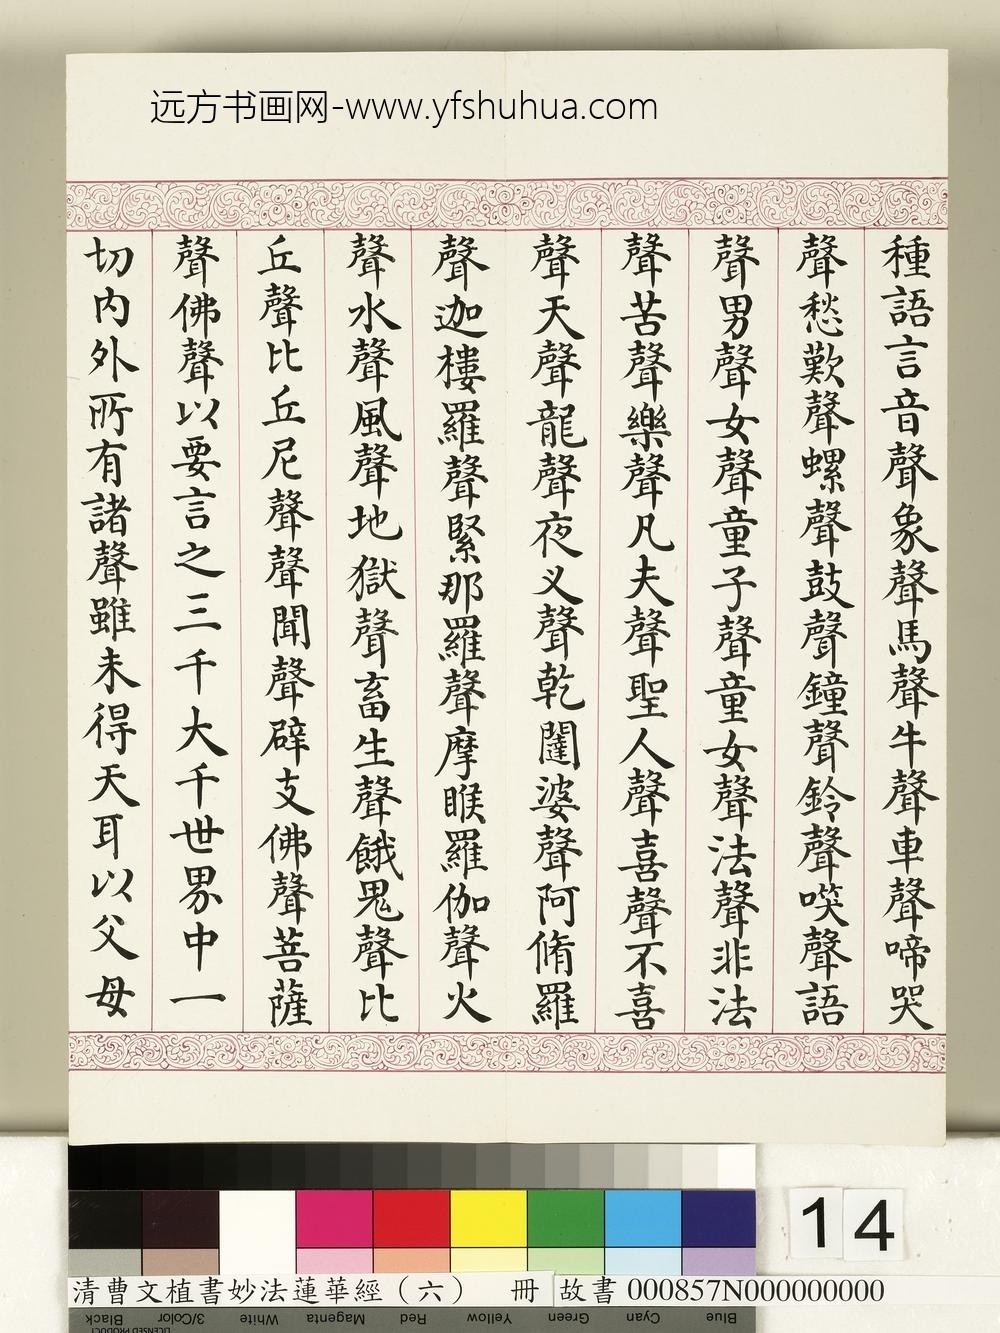 远方书画网-www.yfshuhua.com
種語言音聲象聲馬聲牛聲車聲啼哭
聲愁歎聲螺聲鼓聲鐘聲鈴聲唉聲語
聲男聲女聲童子聲童女聲法聲非法
聲苦聲樂聲凡夫聲聖人聲喜聲不喜
聲天聲龍聲夜义聲乾闥婆聲阿脩羅
聲迦樓羅聲緊那羅聲摩睺羅伽聲火
聲水聲風聲地獄聲畜生聲餓鬼聲比
丘聲比丘尼聲聲聞聲辟支佛聲菩薩
聲佛聲以要言之三千大千世界中一
切內外所有諸聲雖未得天耳以父母
14
清曹文植書妙法蓮華經（六） 冊 故書 000857N000000000
Black 3/Color White Magenta Red Yellow Green Cyan Blue
LICENSED PRODUCT